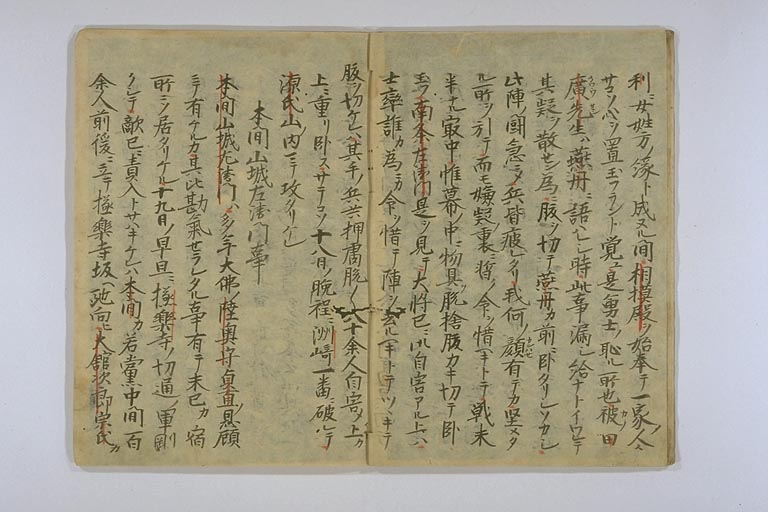 利ニ女姓方ノ縁ト成ヌル間相模殿ヲ始奉テ一家ノ人々
サコソ心ヲ置玉フラント覚ユ是勇士ノ恥ル所也彼田
廣先生ハ燕丹ニ語ハレシ時此事漏シ給ナトイワレテ
其疑ヲ散セン為ニ腹ヲ切テ燕丹カ前ニ卧タリシソカシ
此陣ノ闘急ニメ兵皆疲レタリ我何ノ顔有テカ堅メタ
ル所ヲ引テ而モ嫌疑ノ裏ニ暫ノ命ヲ惜ヘキトテ戦未
半ナル寂中ニ帷幕ノ中ニ物具脱捨腹カキ切テ卧
玉フ南条左衛門是ヲ見テ大将已ニ御自害アル上ハ
士卒誰カ為ニカ命ヲ惜テ陣ヲ去ルヘキトテツヽキテ
腹ヲ切ケレハ其手ノ兵共押膚脱々々八十余人自害メ上カ
上ニ重リ卧スサテコソ十八日ノ晩程ニ洲崎一番ニ破レテ
源氏山ノ内マテ攻タリケレ
本間山城左衛門事
本間山城左衛門ハ多年大佛ノ陸奥守貞直恩顧
ニテ有ケルカ其比勘氣セラレタル事有テ未已カ宿
所ニソ居タリケル十九日ノ早旦ニ極樂寺ノ切通ノ軍
クレテ敵已ニ責入トサハキケレハ本間カ若黨中間一百
余人前後ニ立テ極樂寺坂ヘ馳向フ大舘次郎宗氏カ